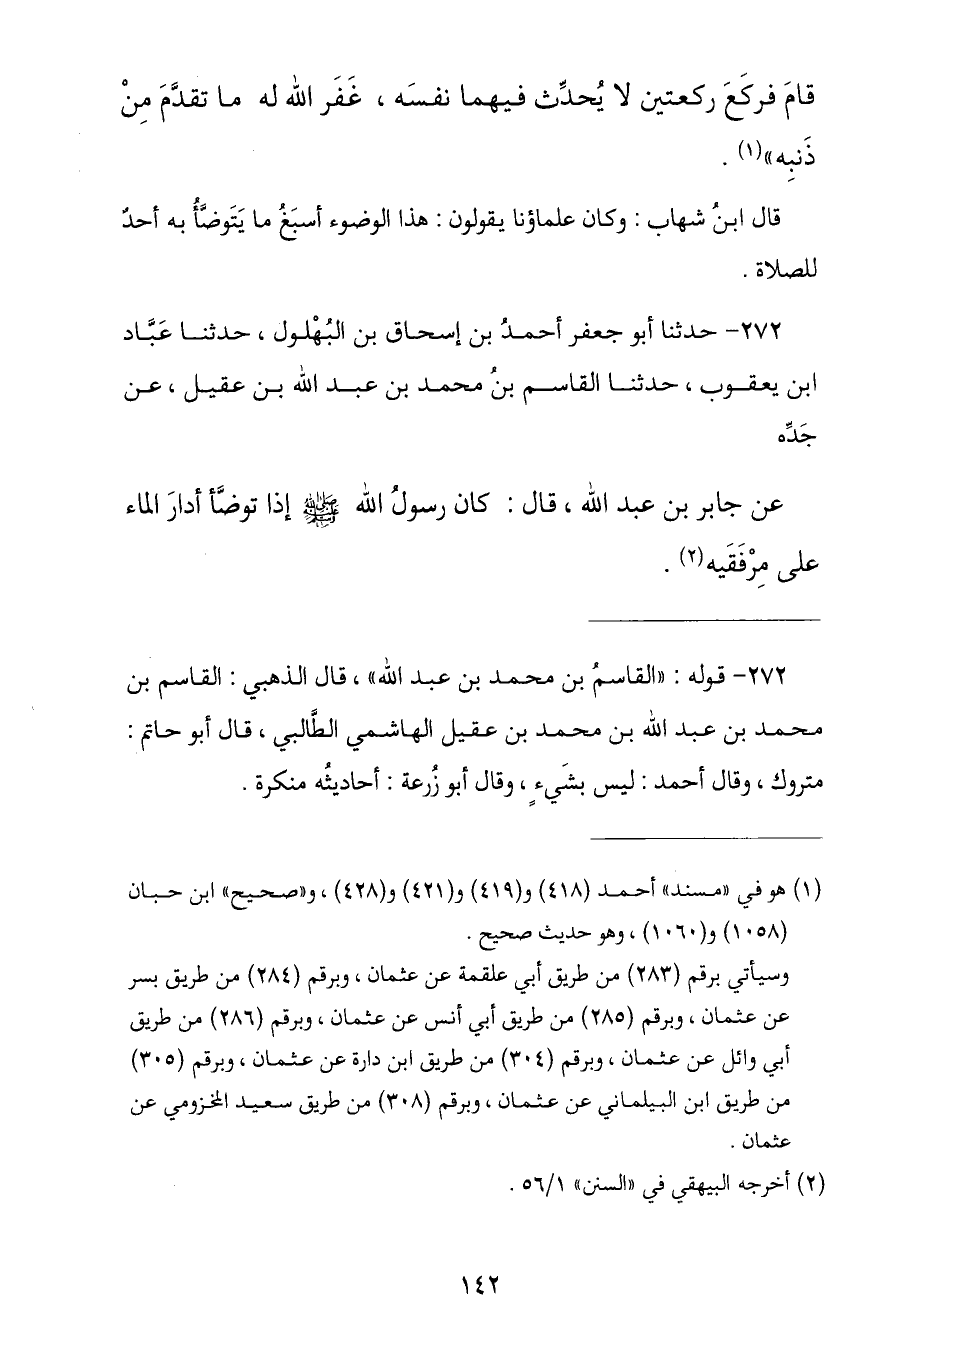 قامَ فركَعَ ركعتين لا يُحدِّث فيهما نفسَه ، غَفَر الله له ما تقدَّمَ مِنْ
ذَنبِه»(١) .
قال ابنُ شهاب : وكان علماؤنا يقولون : هذا الوضوء أسبَغُ ما يَتَوضَّأُ به أحدٌ
للصلاة .
٢٧٢- حدثنا أبو جعفر أحمدُ بن إسحاق بن البُهْلول ، حدثنا عَبَّاد
ابن يعقوب ، حدثنا القاسم بنُ محمد بن عبد الله بن عقيل ، عن
جَدِّه
عن جابر بن عبد الله ، قال : كان رسولُ الله ﷺ إذا توضَّأ أدارَ الماء
على مِرْفَقَيه(٢) .
٢٧٢- قوله : «القاسمُ بن محمد بن عبد الله» ، قال الذهبي : القاسم بن
محمد بن عبد الله بن محمد بن عقيل الهاشمي الطَّالبي ، قال أبو حاتم :
متروك ، وقال أحمد : ليس بشَيءٍ ، وقال أبو زُرعة : أحاديثُه منكرة .
(١) هو في «مسند» أحمد (٤١٨) و(٤١٩) و(٤٢١) و(٤٢٨) ، و«صحيح» ابن حبان
(١٠٥٨) و(١٠٦٠) ، وهو حديث صحيح .
وسيأتي برقم (٢٨٣) من طريق أبي علقمة عن عثمان ، وبرقم (٢٨٤) من طريق بسر
عن عثمان ، وبرقم (٢٨٥) من طريق أبي أنس عن عثمان ، وبرقم (٢٨٦) من طريق
أبي وائل عن عثمان ، وبرقم (٣٠٤) من طريق ابن دارة عن عثمان ، وبرقم (٣٠٥)
من طريق ابن البيلماني عن عثمان ، وبرقم (٣٠٨) من طريق سعيد المخزومي عن
عثمان .
(٢) أخرجه البيهقي في «السنن» ٥٦/١ .
١٤٢